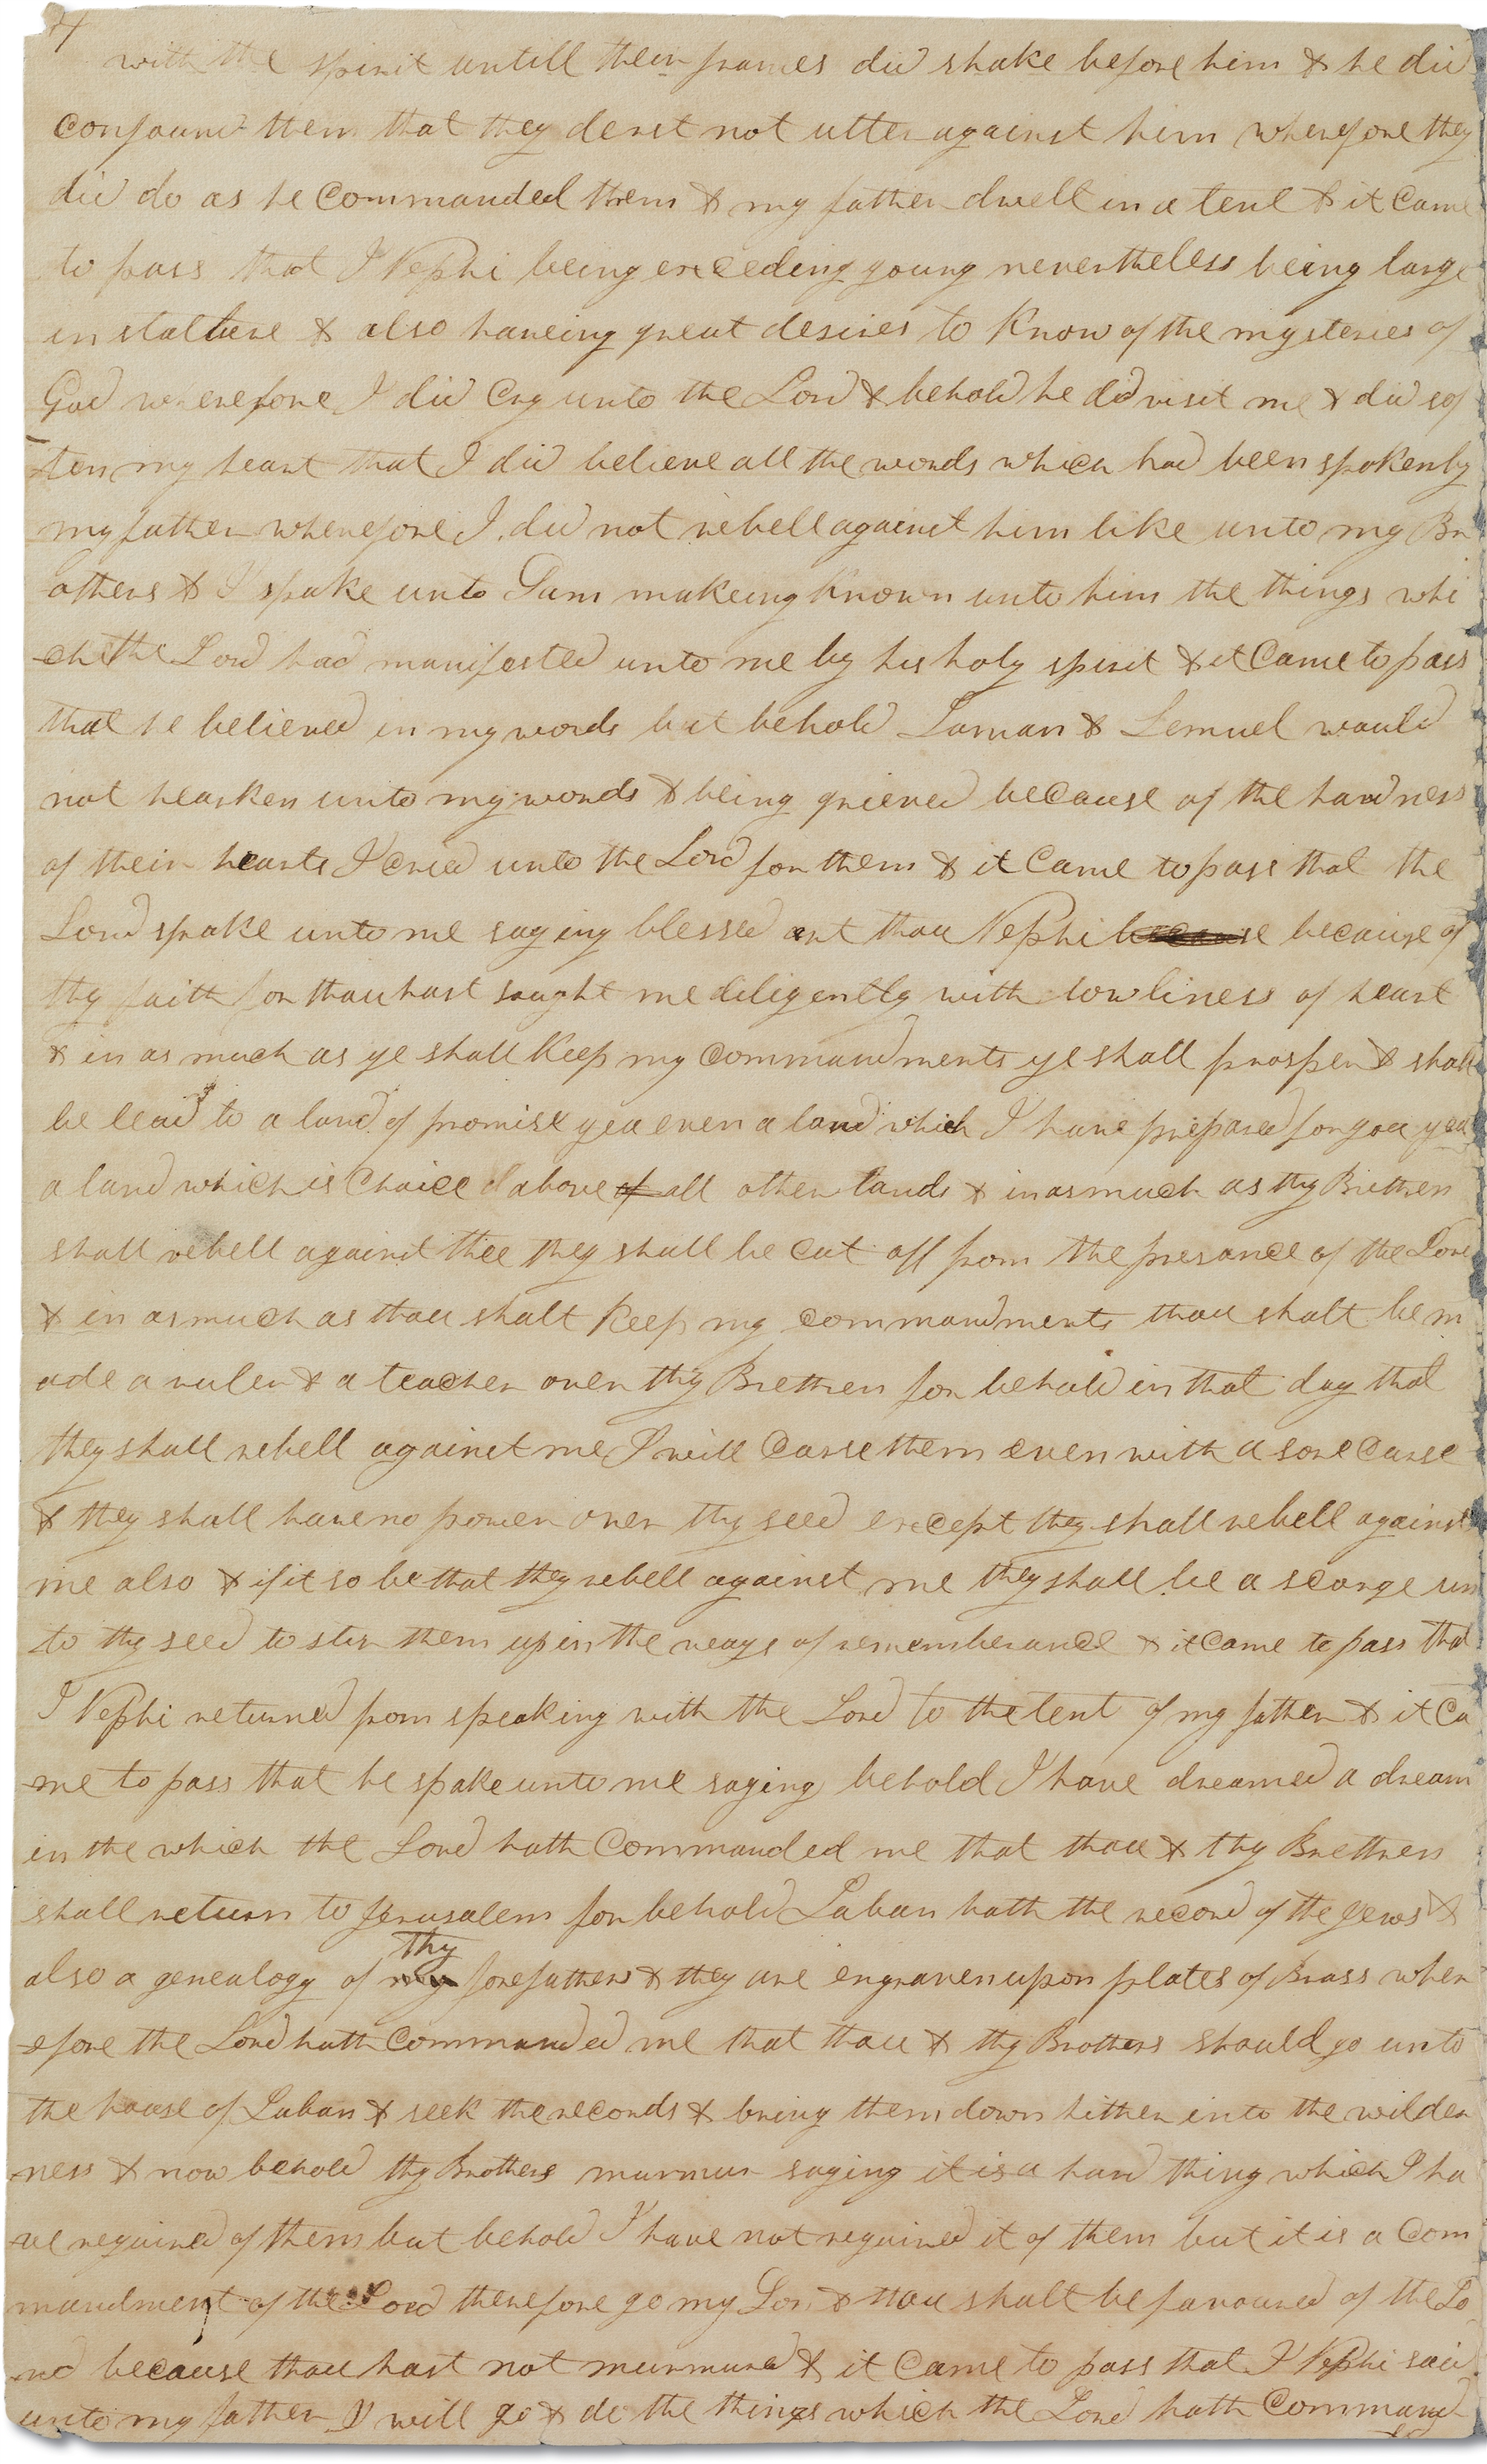 4
with the spirit untill their frames did shake before him & he did
confound them that they derst not utter against him wherefore they
did do as he commanded them & my father dwelt in a tent & it came
to pass that I Nephi being exceeding young nevertheless being large
in stature & also haveing great desires to know of the mysteries of
God wherefore I did cry unto the Lord & behold he did visit me & did sof
ten my heart that I did believe all the words which had been spoken by
my father wherefore I did not rebell against him like unto my Br
others & I spake unto Sam makeing known unto him the things whi
ch the Lord had manifested unto me by his holy spirit & it came to pass
that he believed in my words but behold Laman & Lemuel would
not hearken unto my words & being grieved because of the hardness
of their hearts I cried unto the Lord for them & it came to pass that the
Lord spake unto me saying blessed art thou Nephi because because of
thy faith for thou hast saught me diligently with lowliness of heart
& in as much as ye shall keep my commandments ye shall prosper & shall
be lead to a land of promise yea even a land which I have prepared for you yea
a land which is choice above of all other lands & in as much as thy Brethren
shall rebell against thee they shall be cut off from the presance of the Lord
& in as much as thou shalt keep my commandments thou shalt be m
ade a ruler & a teacher over thy Brethren for behold in that day that
they shall rebell against me I will curse them even with a sore curse
& they shall have no power over thy seed except they shall rebell against
me also & if it so be that they rebell against me they shall be a scorge un
to thy seed to stir them up in the ways of rememberance & it came to pass that
I Nephi returned from speaking with the Lord to the tent of my father & it ca
me to pass that he spake unto me saying behold I have dreamed a dream
in the which the Lord hath commanded me that thou & thy Brethren
shall return to Jerusalem for behold Laban hath the record of the Jews &
thy
also a genealogy of my forefathers & they are engraven upon plates of Brass wher
efore the Lord hath commanded me that thou & thy Brothers should go unto
the house of Laban & seek the records & bring them down hither into the wilder
ness & now behold thy Brothers murmur saying it is a hard thing which I ha
ve required of them but behold I have not required it of them but it is a com
mandment of the Lord therefore go my Son & thou shalt be favoured of the Lo
rd because thou hast not murmured & it came to pass that I Nephi said
unto my father I will go & do the things which the Lord hath command
ed